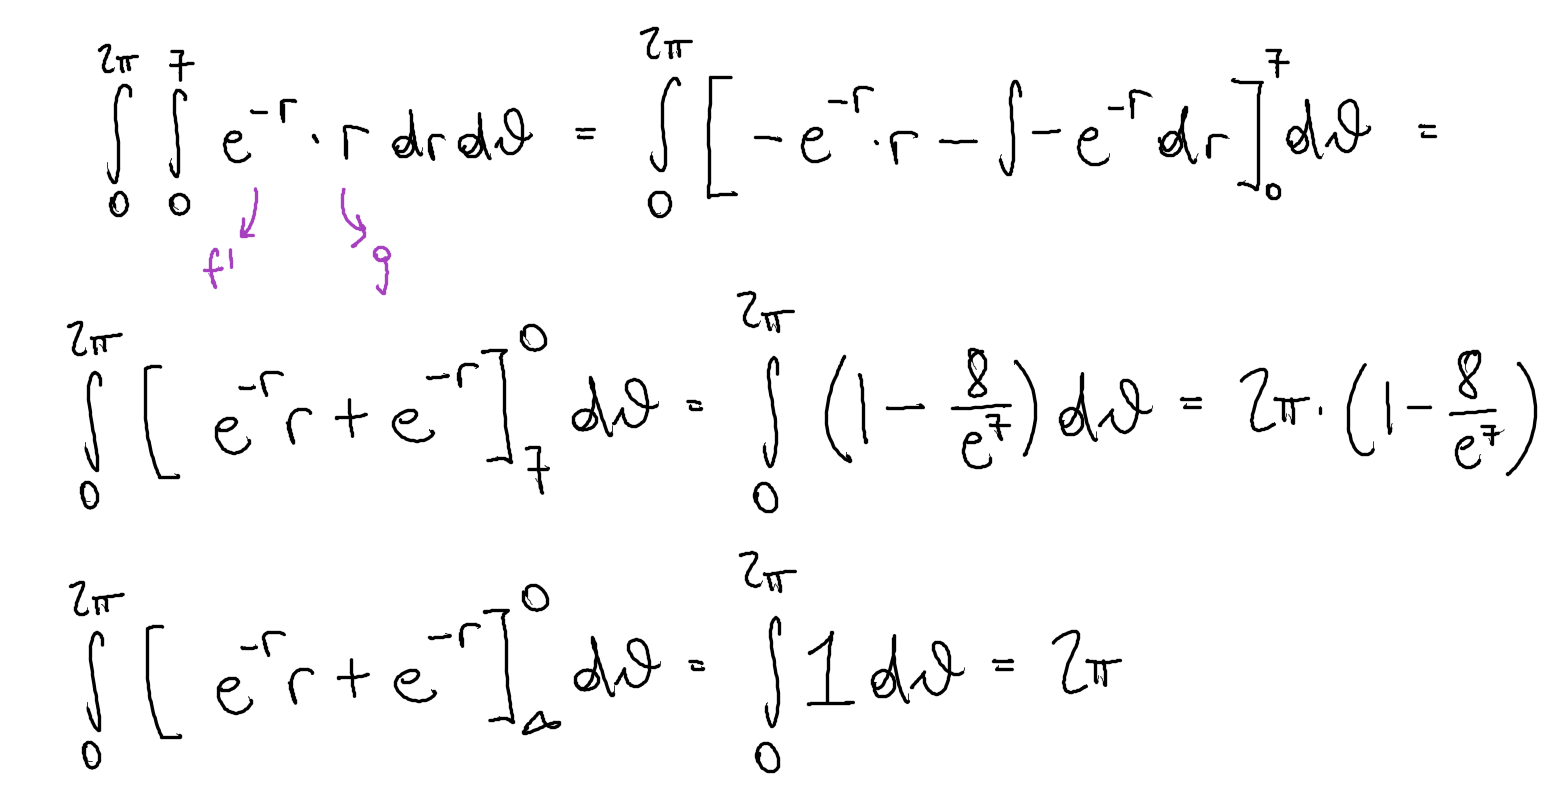 ∫₀^{2π} ∫₀^{7} e^{-r} · r dr dϑ = ∫₀^{2π} [ -e^{-r} · r - ∫ -e^{-r} dr ]₀^{7} dϑ =
f' g
∫₀^{2π} [ e^{-r} r + e^{-r} ]₇^{0} dϑ = ∫₀^{2π} (1 - 8/e^{7}) dϑ = 2π · (1 - 8/e^{7})
∫₀^{2π} [ e^{-r} r + e^{-r} ]_{∞}^{0} dϑ = ∫₀^{2π} 1 dϑ = 2π